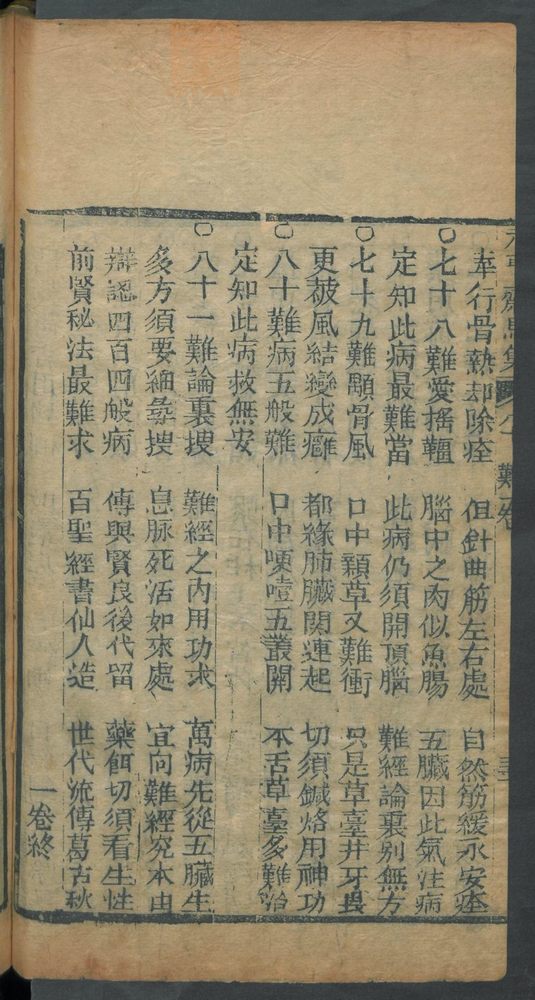 牽行骨熱却除痊 但針曲筋左右處 自然筋緩永安痊
○七十八難愛搖韁 腦中之肉似魚腸 五臟因此氣注病
定知此病最難當 此病仍須開頂腦 難經論裏別無方
○七十九難顒骨風 口中顙草又難衝 只是草臺井牙
更被風結變成癰 都緣肺臟関連起 切須鍼烙用神功
○八十難病五般難 口中哽噎五叢開 不舌草臺多難治
定知此病救無安
○八十一難論裏搜 難經之內用功求 萬病先從五臟生
多方須要細彝搜 息脉死活如來處 宜向難經究本由
辯認四百四般病 傳與賢良後代留 藥餌切須看生性
前賢秘法最難求 百聖經書仙人造 世代流傳萬古秋
一卷終